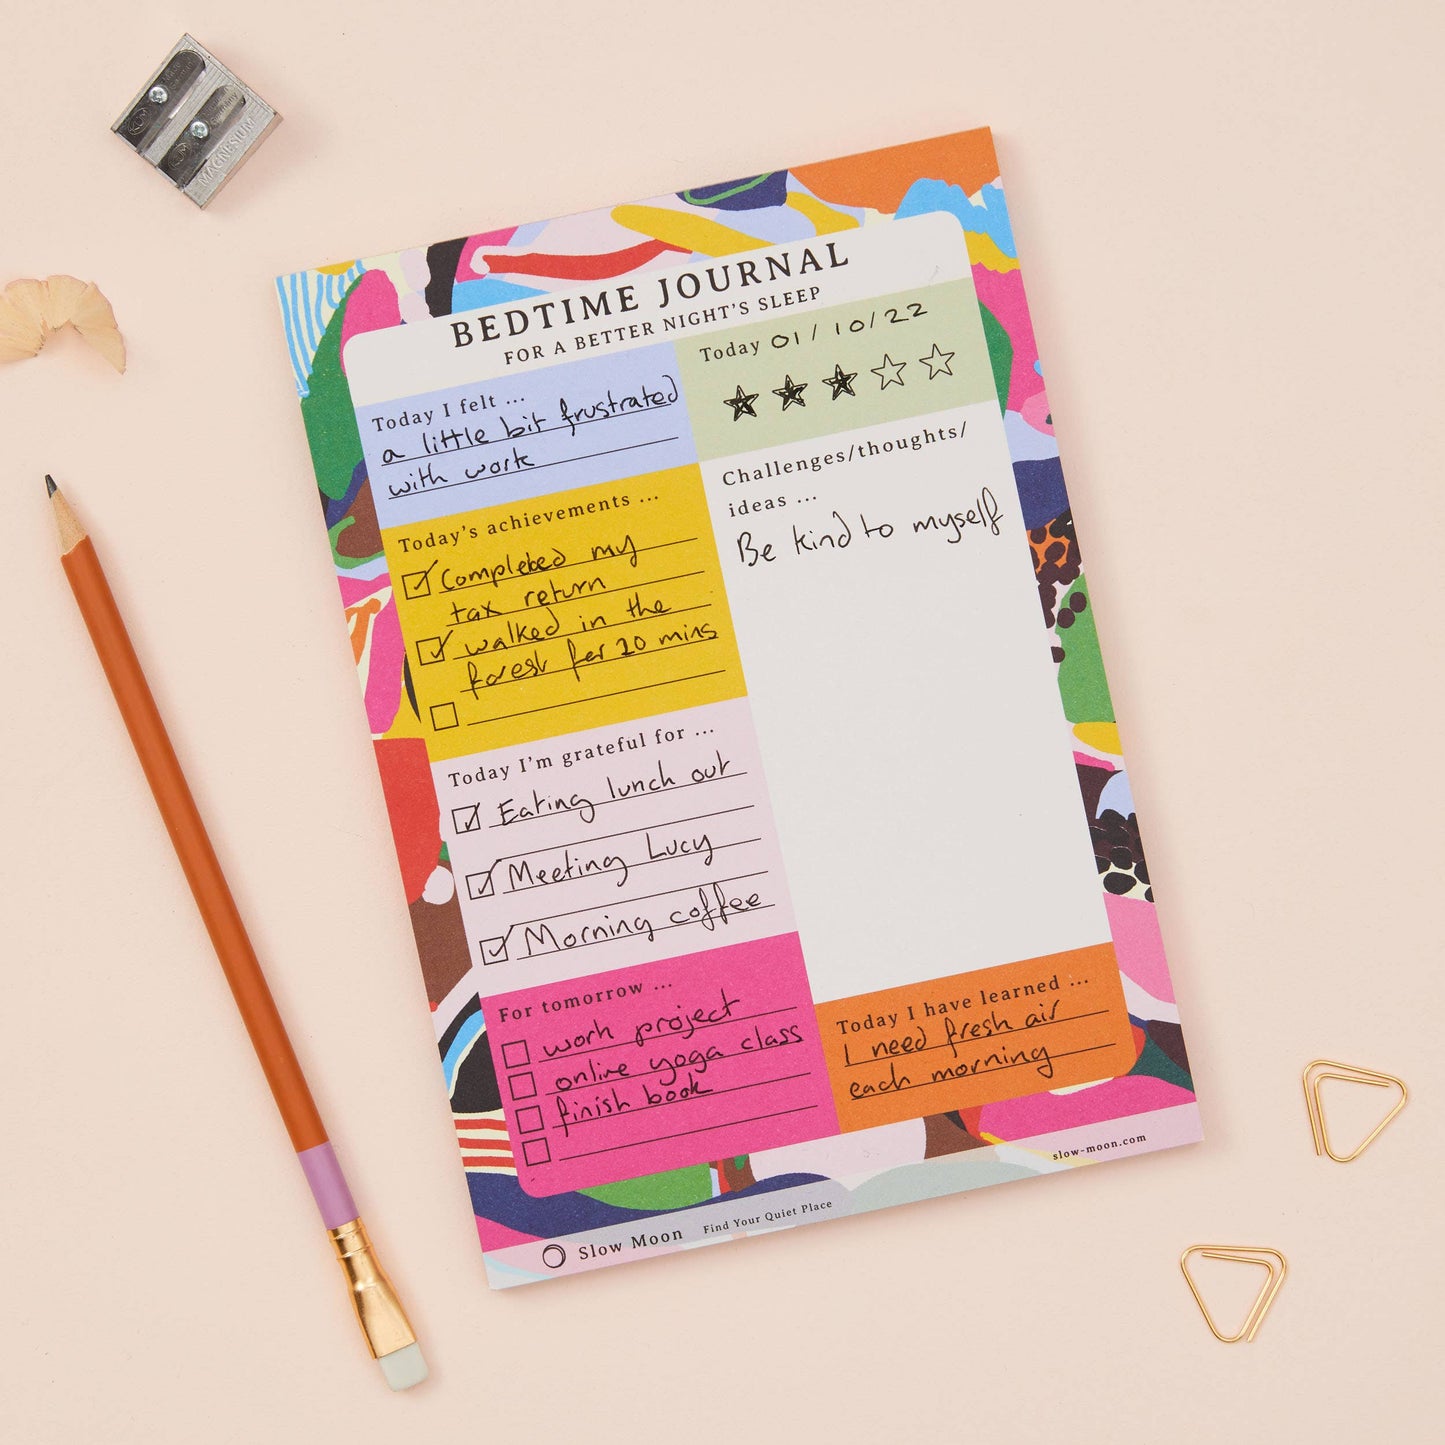 KUM
KUM
MAGNESIUM
BEDTIME JOURNAL
FOR A BETTER NIGHT'S SLEEP
Today 01/10/22
Today I felt ...
a little bit frustrated
with work
Today's achievements ...
Completed my
tax return
walked in the
forest for 20 mins
Today I'm grateful for ...
Eating lunch out
Meeting Lucy
Morning coffee
For tomorrow ...
work project
online yoga class
finish book
Challenges/thoughts/
ideas ...
Be kind to myself
Today I have learned ...
I need fresh air
each morning
slow-moon.com
Slow Moon Find Your Quiet Place